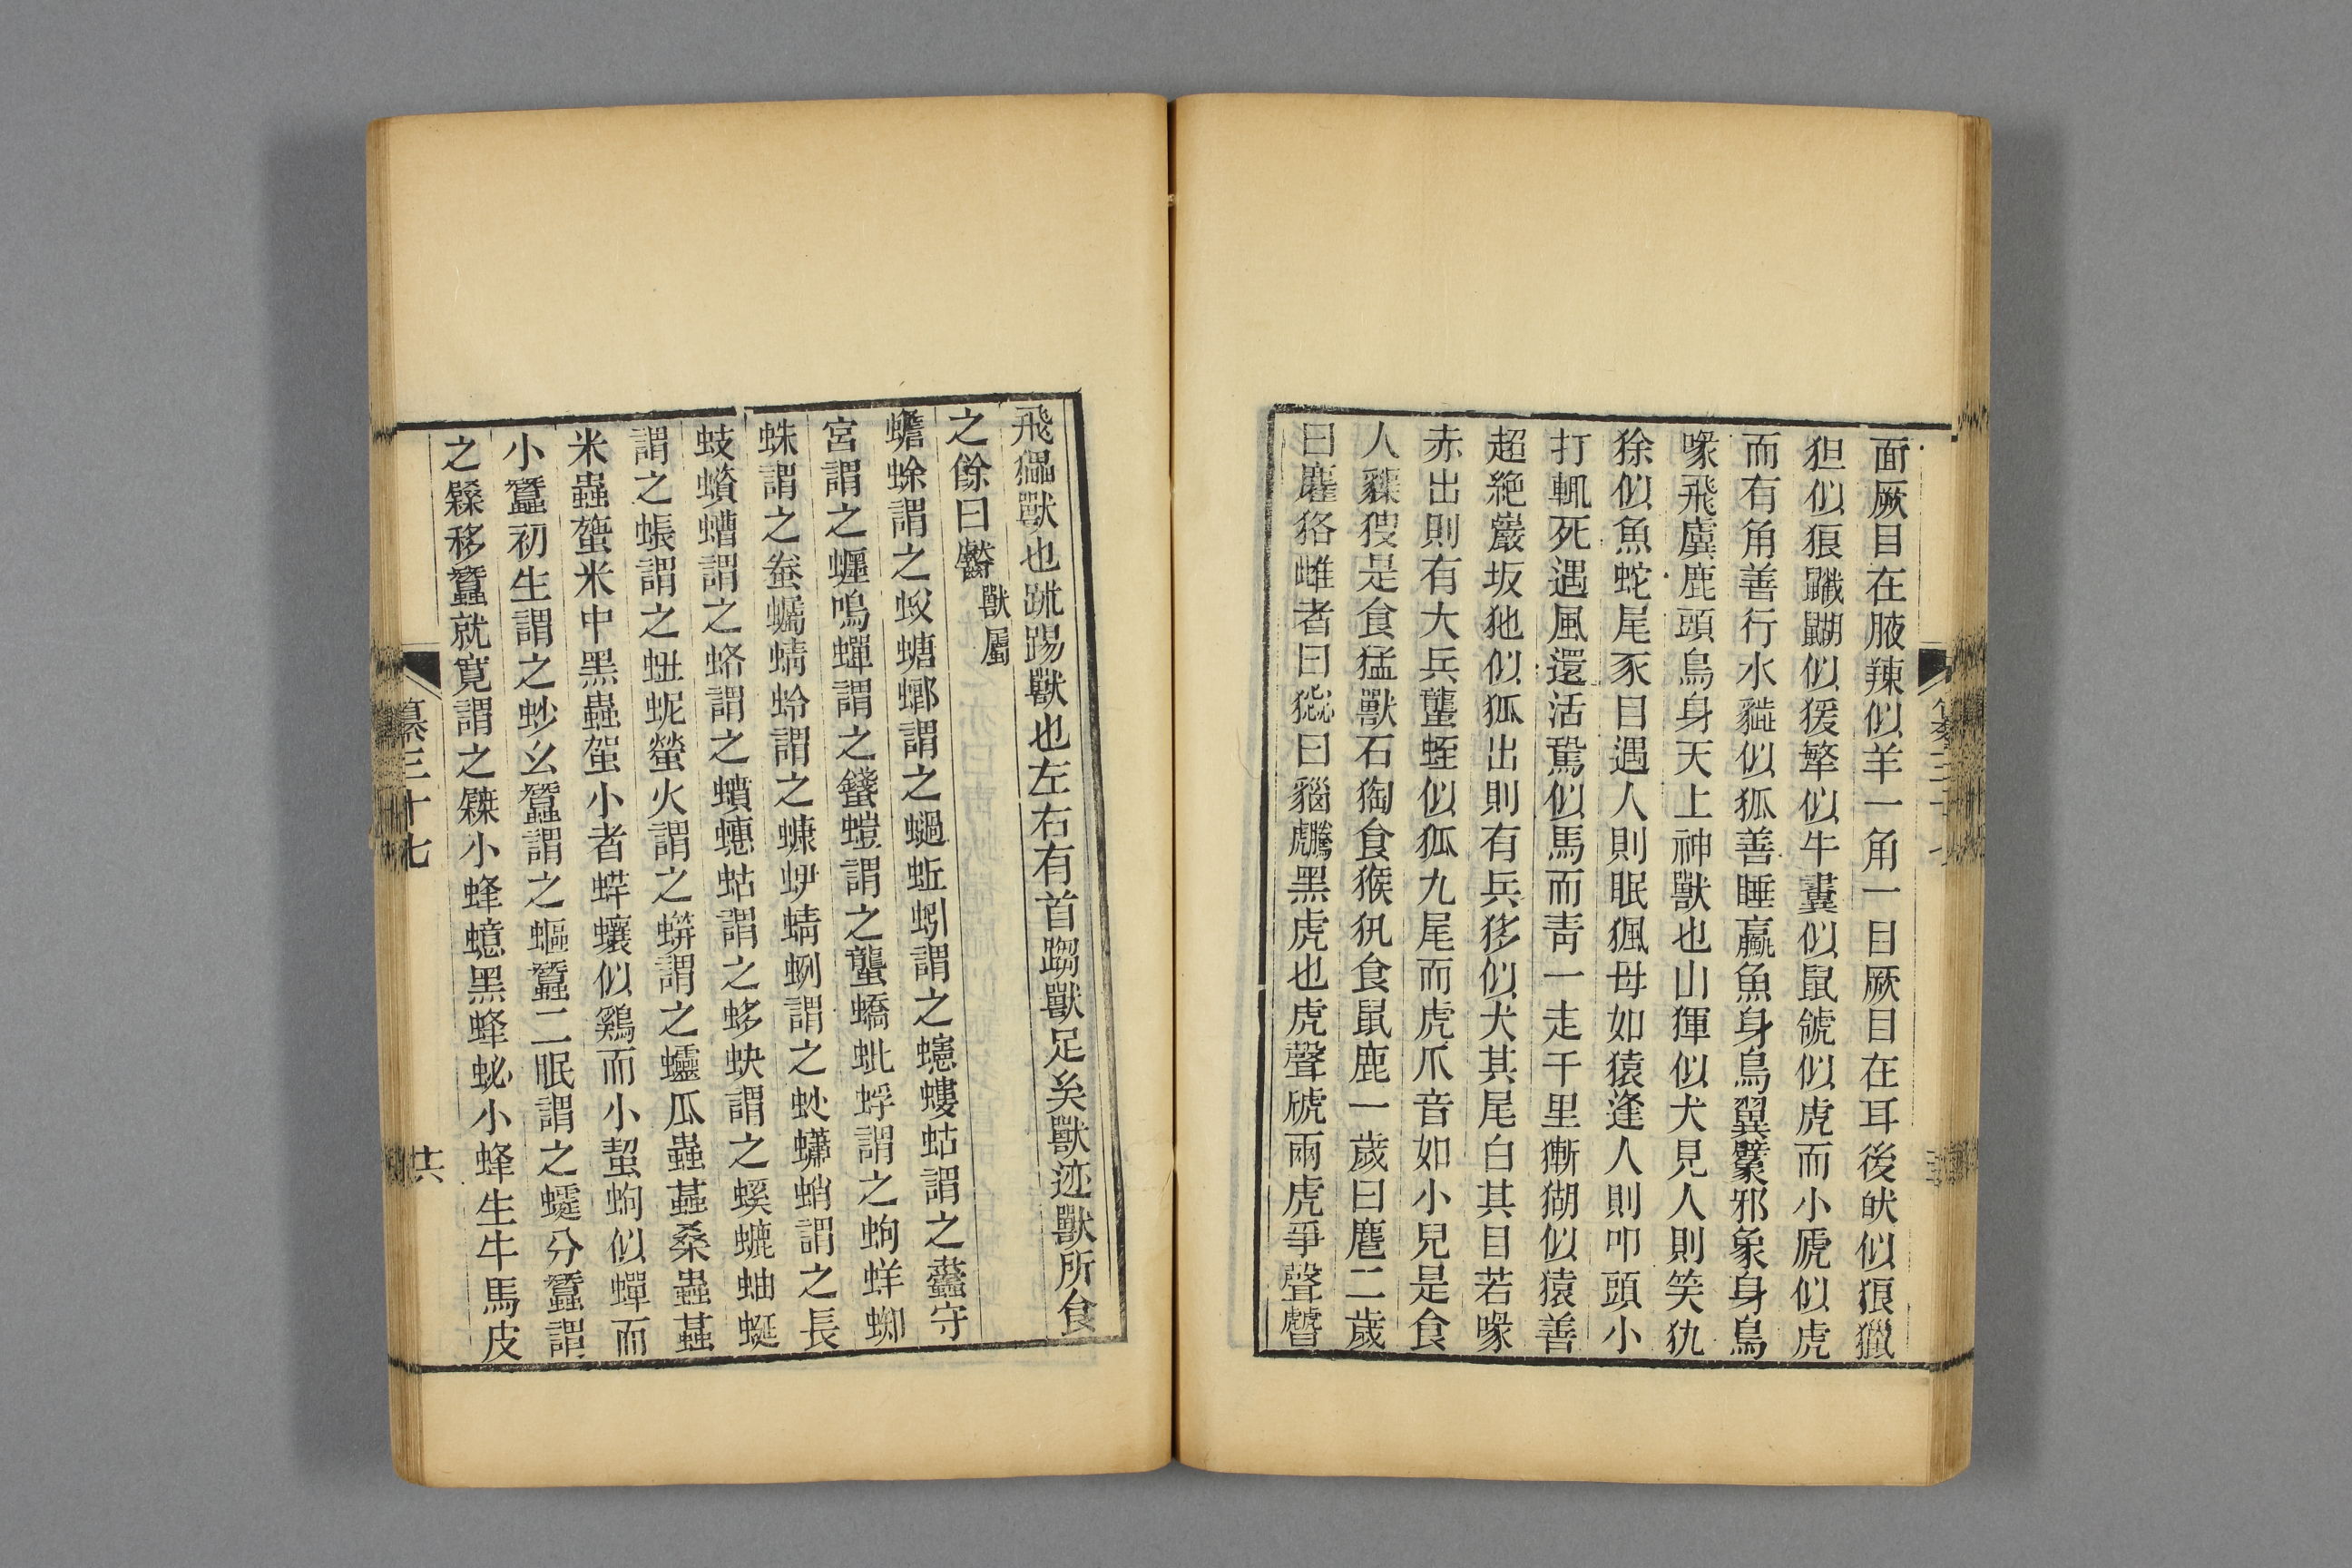 面厥目在腋辣似羊一角一目厥目在耳後㹤似狼獵
狚似狼䶪䶅似猨犛似牛㯱似鼠虪似虎而小虒似虎
而有角善行水貓似狐善睡蠃魚身鳥翼鷩邪象身鳥
喙飛虞鹿頭鳥身天上神獸也山㹆似犬見人則笑犰
狳似魚蛇尾豕目遇人則眠猦母如猿逢人則叩頭小
打輒死遇風還活駕似馬而青一走千里獑猢似猿善
超絶巖坂狏似狐出則有兵狏似犬其尾白其目若喙
赤出則有大兵蠪蛭似狐九尾而虎爪音如小兒是食
人貘䝚是食猛獸石㺀食猴犼食鼠鹿一歲曰麆二歲
曰䴥狢雌者曰㹮曰貓䲢黑虎也虎聲虓兩虎爭聲𧇭
飛獵獸也跳踢獸也左右有首䠓獸足矣獸迹獸所食
之餘曰齾
獸屬
蟾蜍謂之蚥螗螂謂之螁蚯蚓謂之螼螻蛄謂之蠹守
宮謂之蝘鳴蟬謂之蠽螘謂之蠪蟜蚍蜉謂之蚼蛘蝍
蛛謂之蚕蠾蜻蛉謂之螊蛜蜻蛚謂之蚑蠨蛸謂之長
蚑蠀螬謂之蛒謂之蟦蟪蛄謂之蛥蚗謂之螇螰蚰蜒
謂之蚭謂之蚰蚭螢火謂之蠸謂之蠦瓜蟲䖝桑蟲䖝
米蟲蛩米中黑蟲蛩小者蛘蠰似鷄而小蜤蚼似蟬而
小蠶初生謂之䖢么蠶謂之蝹蠶二眠謂之蠥分蠶謂
之䘃移蠶就寛謂之䘃小蜂螅黑蜂蛯小蜂生牛馬皮
纂三十七
廿六